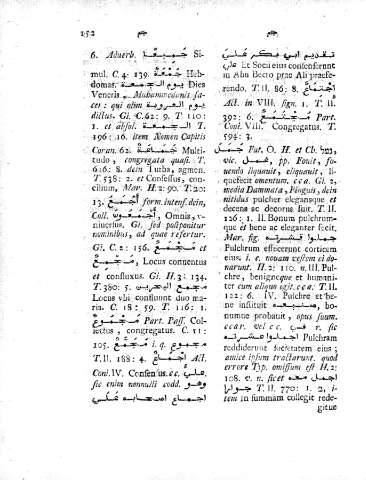 252 جم جم
6. Adverb. جَمِيعًا Si-
mul. C. 4: 139. جُمْعَةٌ Heb-
domas. يوم الجمعة Dies
Veneris. Muhammedanis fa-
cer: qui olim يوم العروبة
dictus. Gi. C. 62: 9. T. 110:
1. et absol. الجمعة T.
196: 16. item Nomen Capitis
Coran. 62. جَمَاعَةٌ Multi-
tudo, congregata quasi. T.
616: 8. dein Turba, agmen.
T. 538: 2. et Consessus, con-
cilium, Mar. H. 2: 90. T. 20:
13. أَجْمَعُ form. intensf. dein,
Coll. أَجْمَعُونَ Omnis, u-
niversus. Gi. sed postponitur
nominibus, ad quae refertur.
Gi. C. 2: 156. مَجْمَعٌ et
مَجْمِعٌ, Locus conventus
et confluxus. Gi. H. 3: 134.
T. 380: 5. مجمع البحرين
Locus vbi confluunt duo ma-
ria. C. 18: 59. T. 116: 1.
مَجْمُوعٌ Part. Pass. Col-
lectus, congregatus. C. 11:
105. مُجَمَّعٌ i. q. مجموع
T. II. 188: 4. أَجْمَعَ Act.
Coni. IV. Consensus. cc. علي,
sic enim nonnulli codd. وهو
اجماع اصحابه علي
تقديم ابي بكر علي
Et Socii eius consenserunt
in Abu Becro prae Ali praefe-
rendo. T. II. 86: 8. اجْتِمَاعٌ
Act. in VIII. sign. 1. T. II.
392: 6. مُجْتَمِعٌ Part.
Coni. VIII. Congregatus. T.
594: 3.
جمل Fut. O. H. et Cb.
vic. همل, pp. Fouit, fo-
uendo liquauit, eliquauit, li-
quefecit omentum. cca. Gi. 2,
media Dammata, Pinguis, dein
nitidus pulcher eleganseque et
decens ac decorus fuit. T. II.
126: 1. II. Bonum pulchrum-
que et bene ac eleganter fecit.
Mar. fig. جملوا قشرته
Pulchrum effecerunt corticem
eius. i. e. nouam vestem ei do-
narunt. H. 2: 110. n. III. Pul-
chre, benigneque et humani-
ter cum aliquo egit. cca. T. II.
122: 6. IV. Pulchre et be-
ne instituit صنيعه, bo-
numque probauit, opus suum.
ccar. vel cc. في r. sic
اجملوا عشرته Pulchram
reddiderunt societatem eius;
amice ipsum tractarunt. quod
errore Typ. omissum est H. 2:
108. v. n. sicet اجمل معه
T. II. 770: 1. 2, i-
tem in summam collegit rede-
gitue